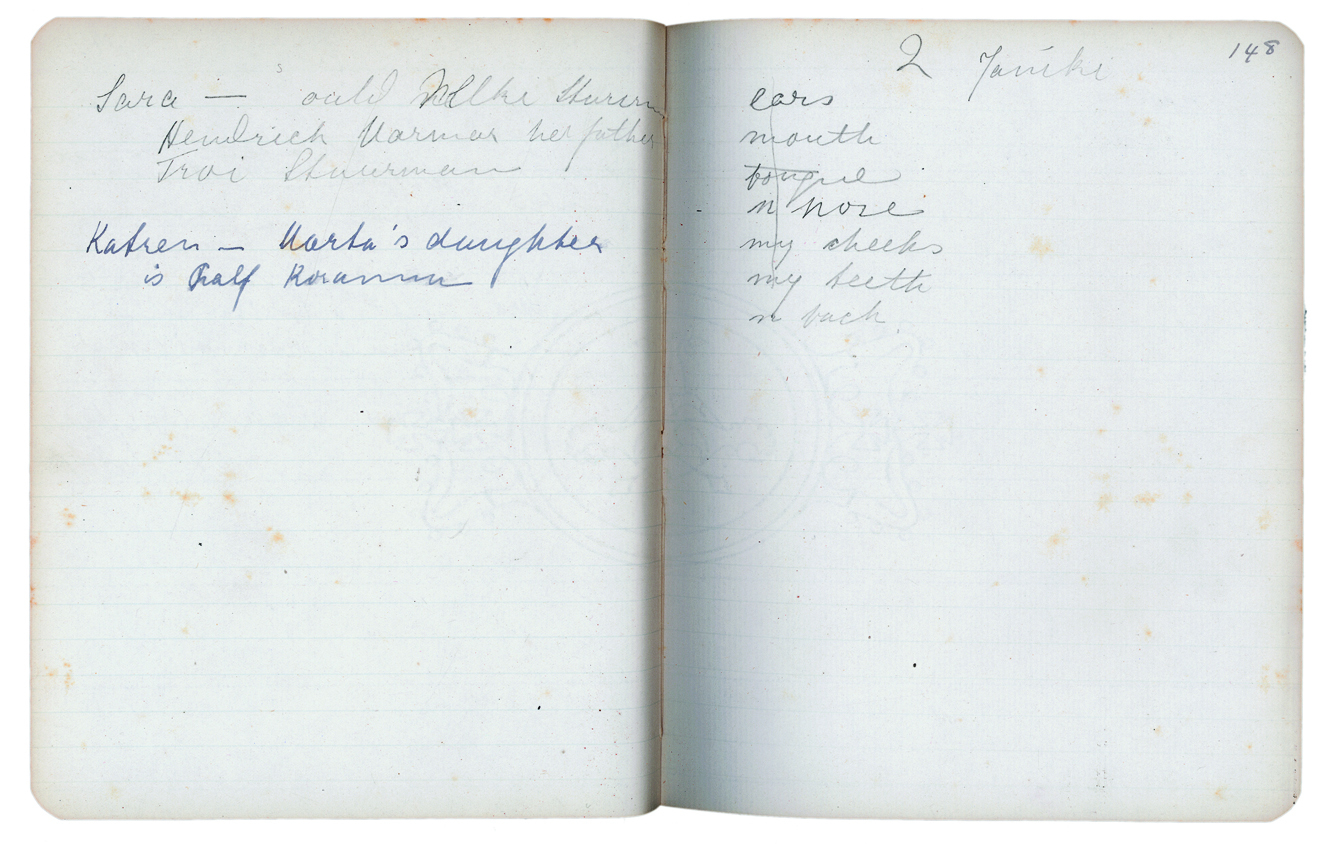 Sara — ould Mllke Sturrm
Hendrich Marmar her father
Troi Stuurman
Katren — Marta's daughter
is half Koranna
148
2 Janike
ears
mouth
tongue
n nose
my cheeks
my teeth
n back